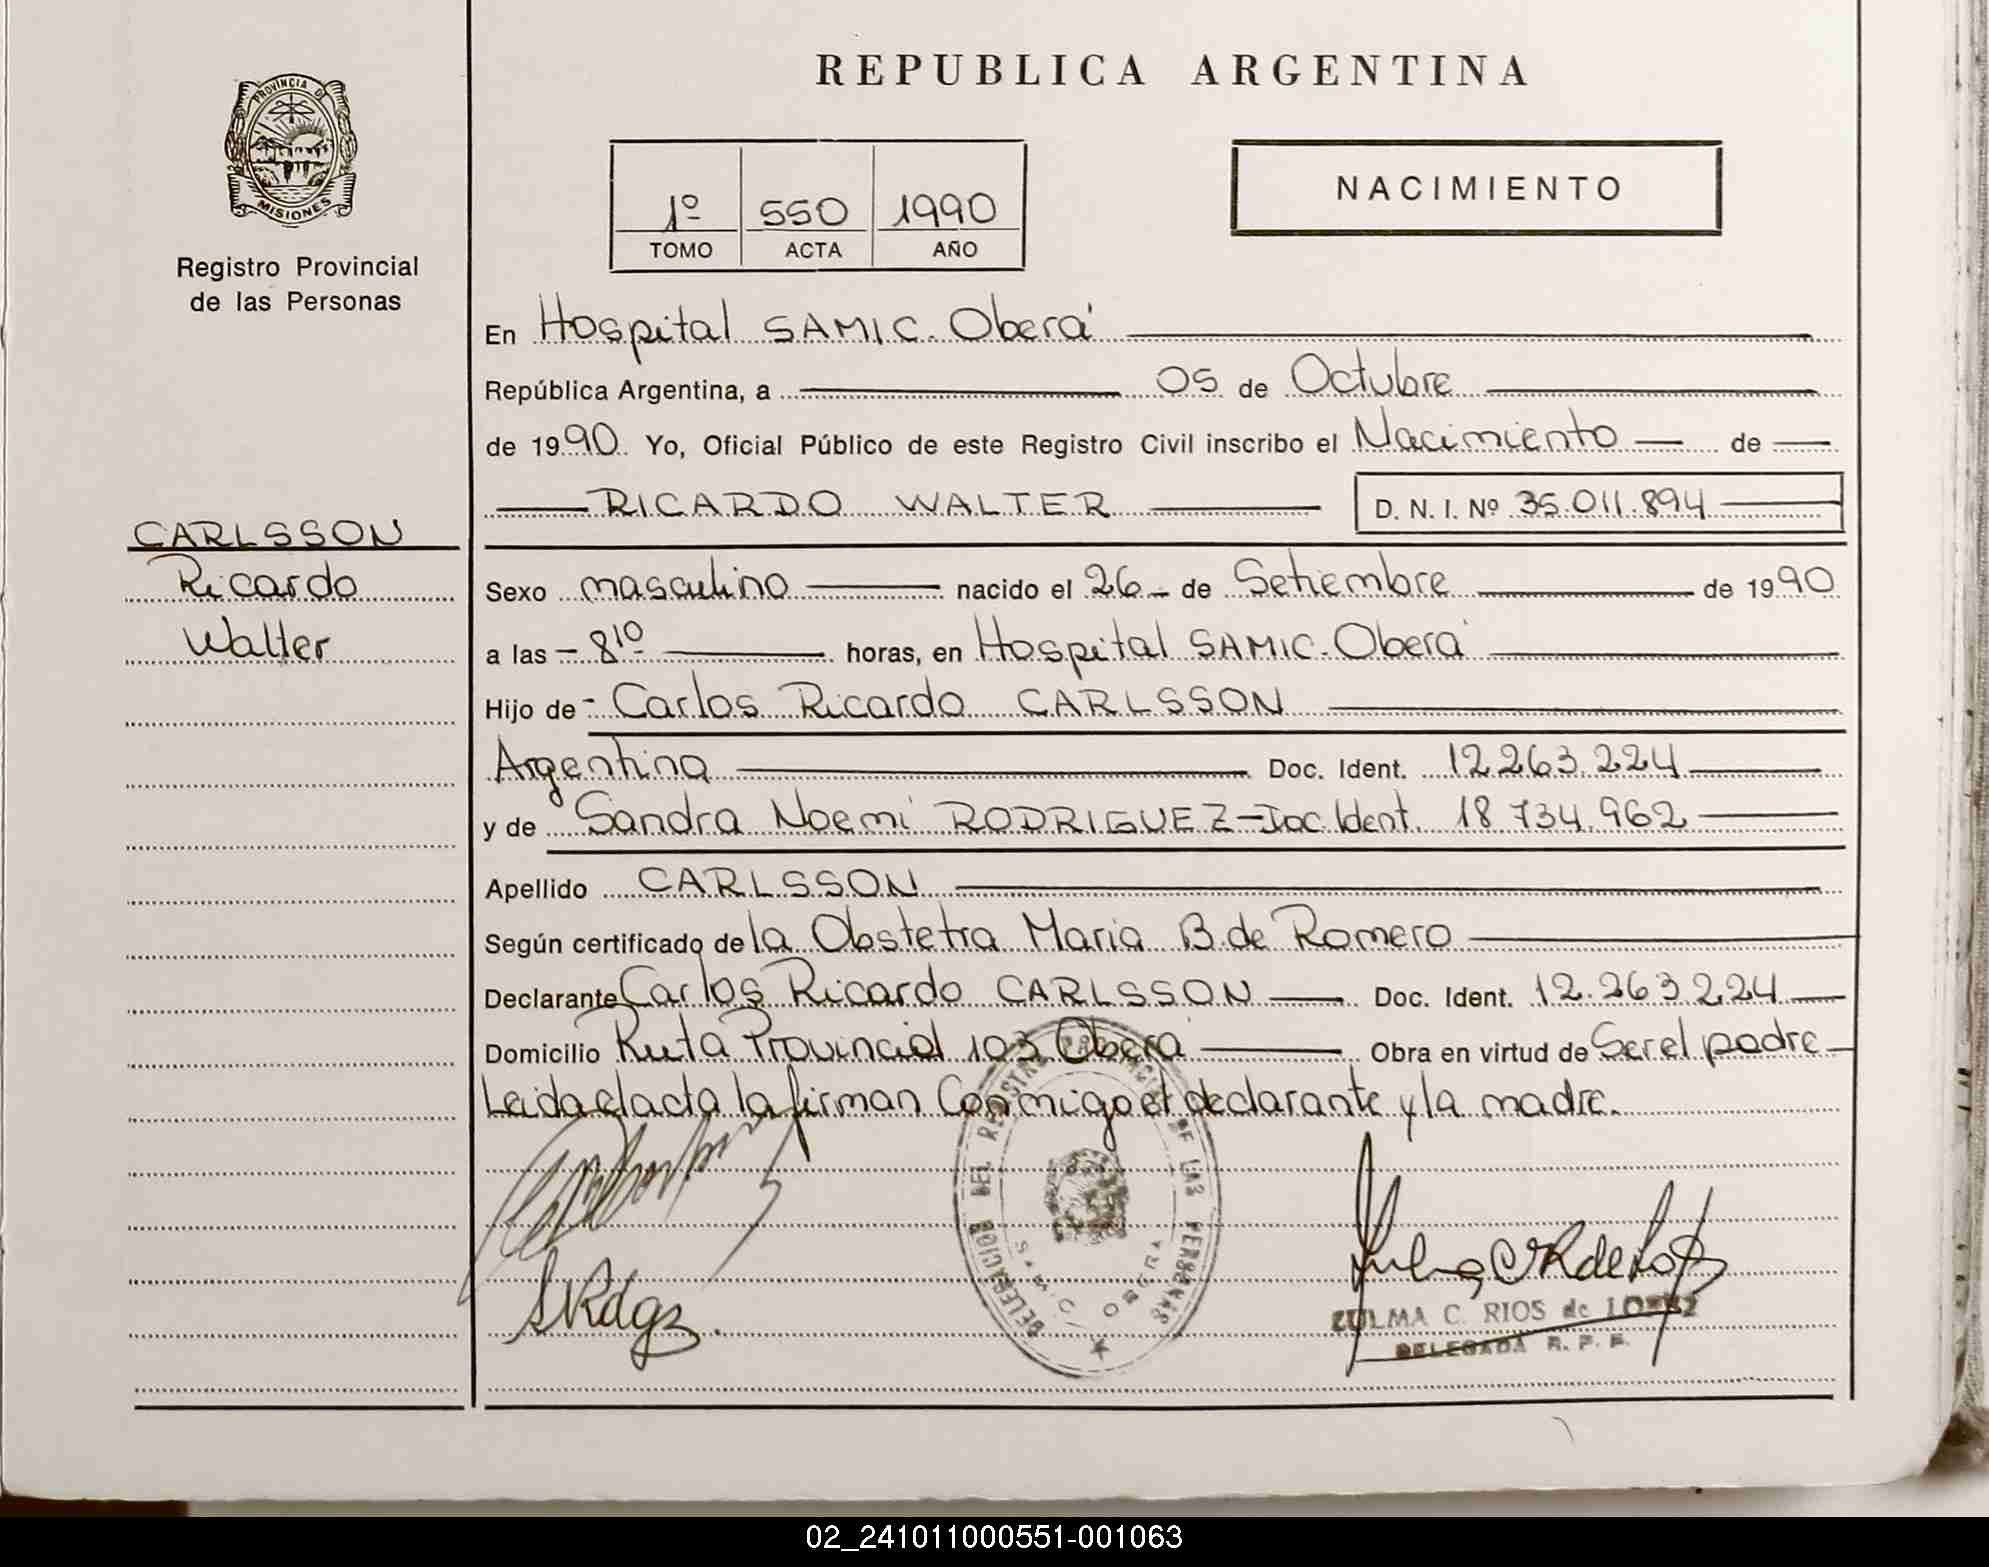 PROVINCIA D
MISIONES
Registro Provincial
de las Personas
CARLSSON
Ricardo
Walter
REPUBLICA ARGENTINA
1º 550 1990
TOMO ACTA AÑO
NACIMIENTO
En Hospital SAMIC. Oberá
República Argentina, a 05 de Octubre
de 1990. Yo, Oficial Público de este Registro Civil inscribo el Nacimiento de
RICARDO WALTER D. N. I. Nº 35.011.894
Sexo masculino nacido el 26 de Setiembre de 1990
a las 8 10 horas, en Hospital SAMIC. Oberá
Hijo de Carlos Ricardo CARLSSON
Argentina Doc. Ident. 12.263.224
y de Sandra Noemi RODRIGUEZ - Doc. Ident. 18.734.962
Apellido CARLSSON
Según certificado de la Obstetra Maria B. de Romero
Declarante Carlos Ricardo CARLSSON Doc. Ident. 12.263.224
Domicilio Ruta Provincial 103 Oberá Obra en virtud de Ser el padre
Leida el acta la firman Conmigo el declarante y la madre.
DELEGACION DEL REGISTRO PROVINCIAL DE LAS PERSONAS
S.A.M.I.C. OBERA
SRdgz.
ZULMA C. RIOS de LOPEZ
DELEGADA R. P. P.
02_241011000551-001063